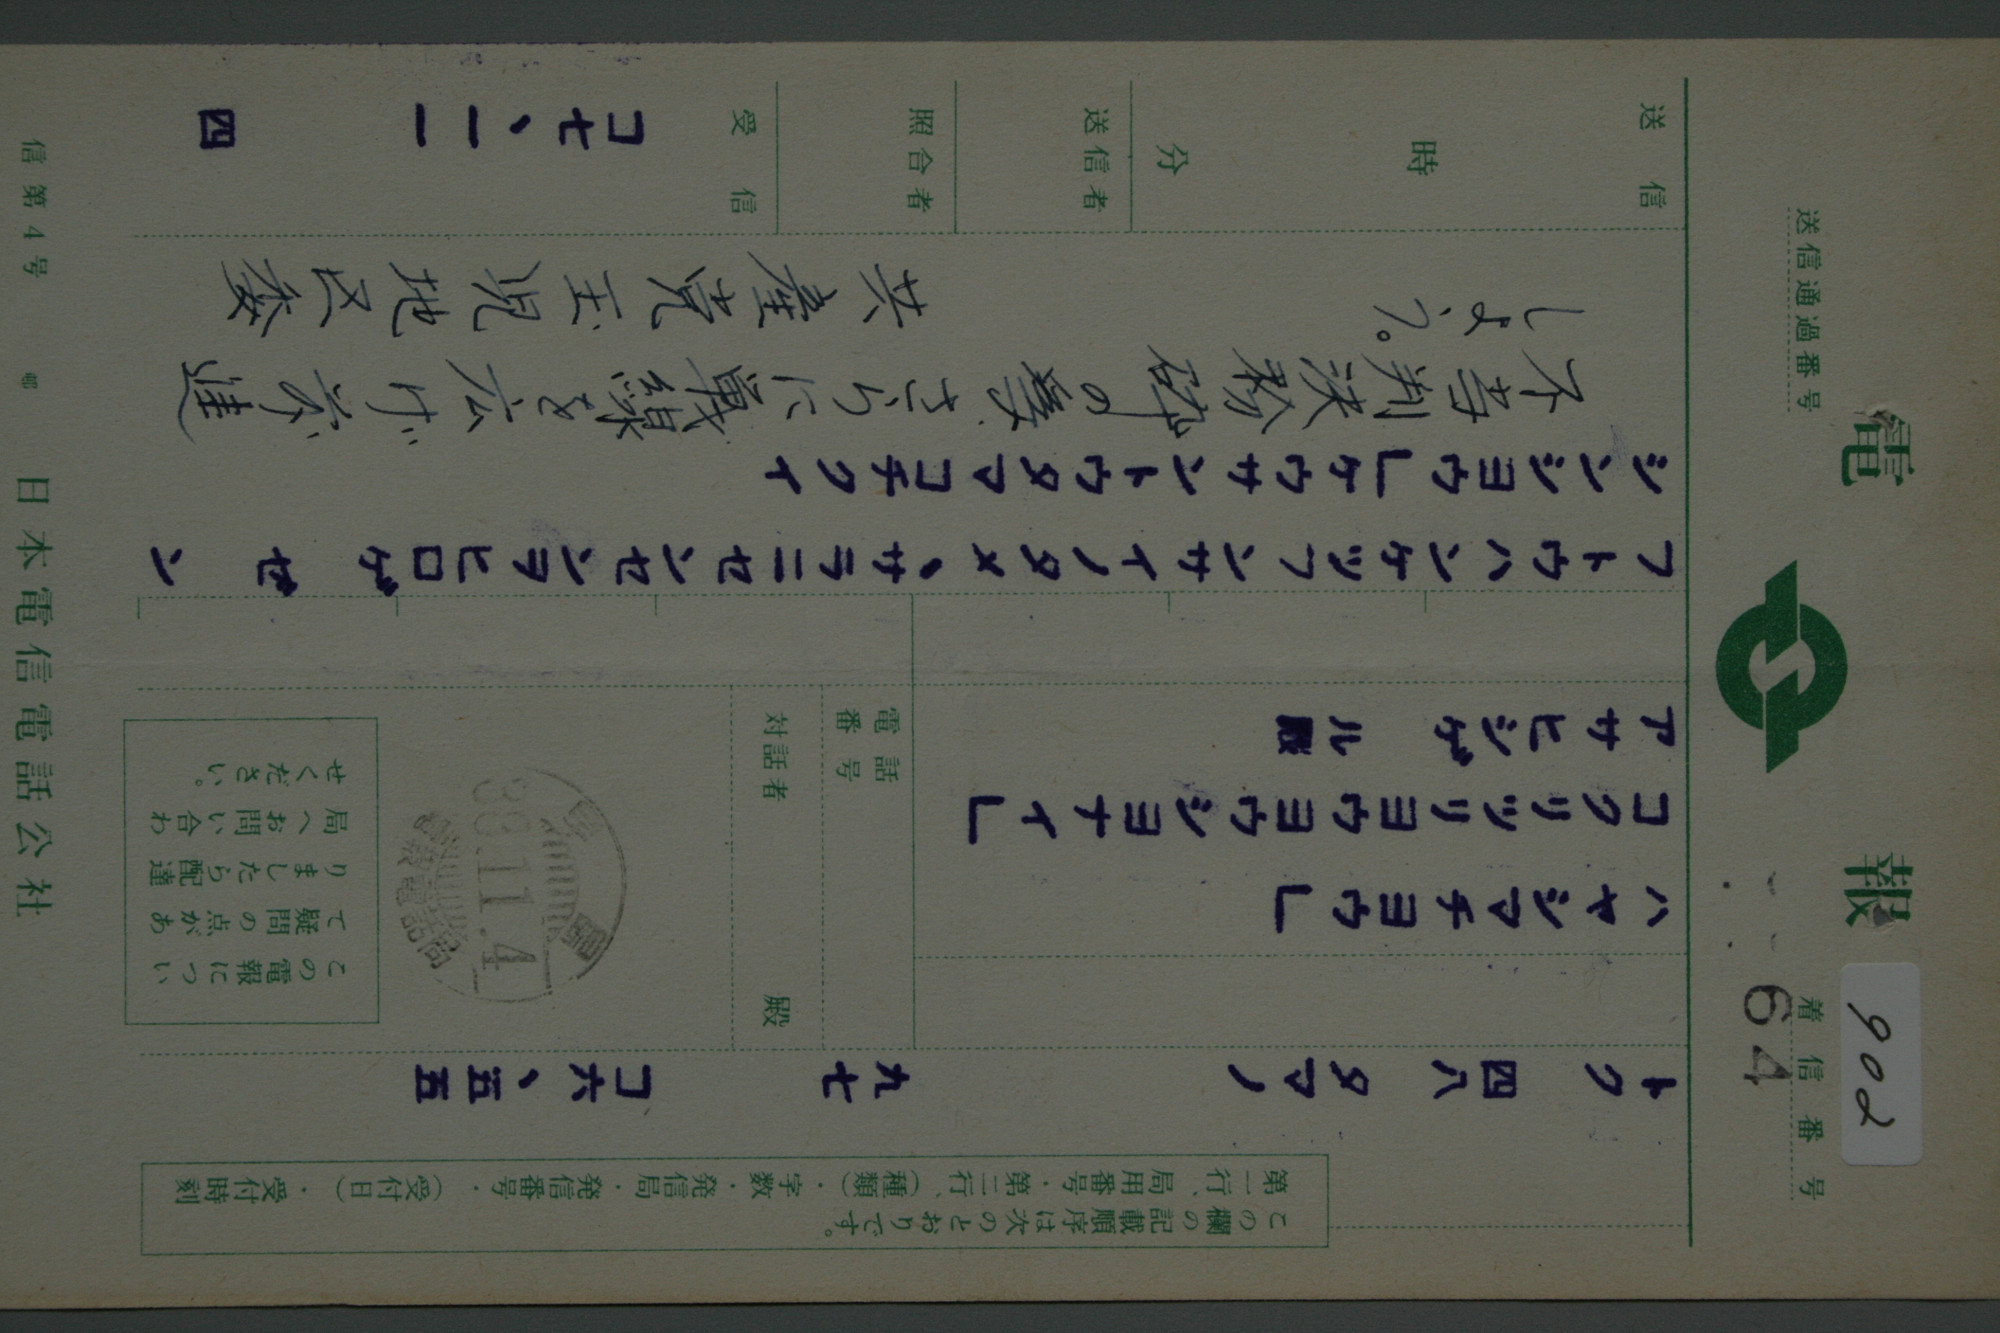 電報
902
送信通過番号
着信番号 64
この欄の記載順序は次のとおりです。
第一行、局用番号・第二行、(種類)・字数・発信局・発信番号・(受付日)・受付時刻
トク 四八 タマノ 九七 コ六、五五
ハヤシマチヨウ」
コクリツリヨウヨウシヨナイ」
アサヒシゲル殿
電話番号
対話者 殿
38.11.4
この電報につい
て疑問の点があ
りましたら配達
局へお問い合わ
せください。
フトウハンケツフンサイノタメ、サラニセンセンヲヒロゲゼン
シンシヨウ」ケウサントウタマコチクイ
不当判決粉砕の為、さらに戦線を広げ前進
しよう。
共産党玉児地区委
送信
時
分
送信者
照合者
受信
コ七、一一 四
信第4号
日本電信電話公社